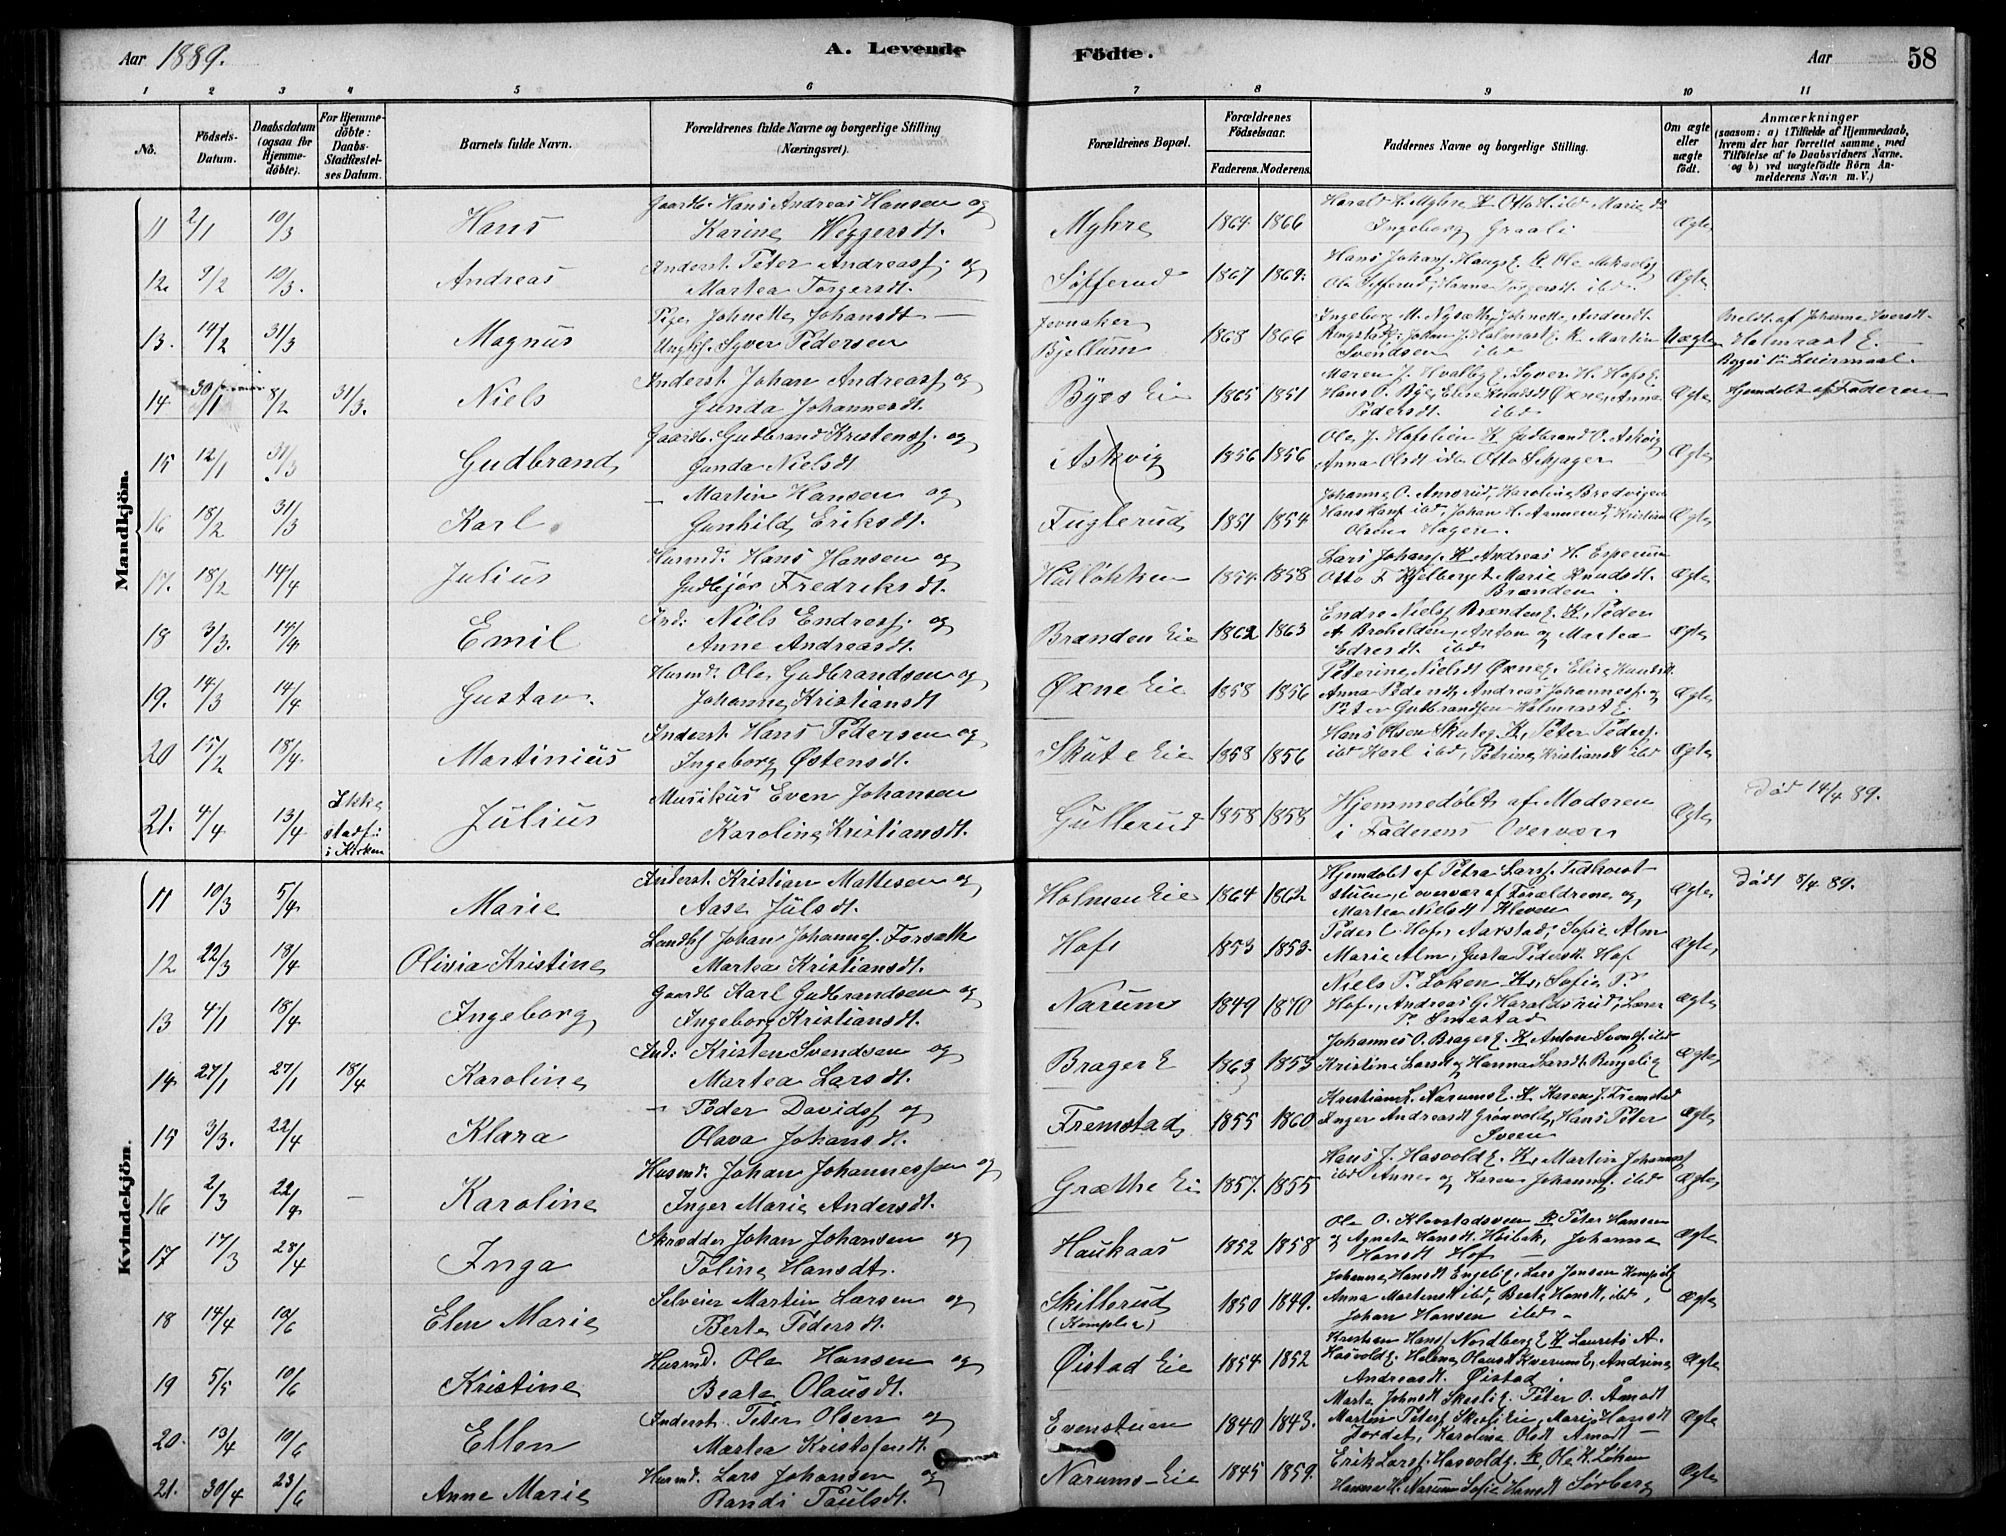 Aar 1889.
A. Levende
Födte.
Aar
58
1 2 3 4 5 6 7 8 9 10 11
No.
Födsels-Datum.
Daabsdatum (ogsaa for Hjemmedöbte).
For Hjemmedöbte: Daabs-Stadfæstelses Datum.
Barnets fulde Navn.
Forældrenes fulde Navne og borgerlige Stilling (Næringsvei).
Forældrenes Bopæl.
Forældrenes Födselsaar.
Faderens. Moderens.
Faddernes Navne og borgerlige Stilling.
Om ægte eller uægte födt.
Anmærkninger
(saasom: a) i Tilfælde af Hjemmedaab, hvem der har forrettet samme, med Tilföielse af to Daabsvidners Navne. og b) ved uægtefödte Börn Anmelderens Navn m. V.)
Mandkjön.
11 2/1 10/3 Hans Gaardb. Hans Andreas Hansen og Myhre 1864 1866 Harald H. Myhre K Otto H. ibd Marie Ægte
Karine Weggersdt. Ingeborg Graali
12. 9/2 10/3. Andreas Inderst. Peter Andreass. og Søfferud 1867 1869. Hans Johans. Haugs E. K Ole Ægte
Martea Torgersdt.
13. 14/2 31/3 Magnus Pige Johnette Johansdt Jevnaker 1868 1866 Ingeborg M. Uægte Johanne Iversdt
Ungkf. Syver Pedersen Bjellum Svendsen ibd Holmrast E.
Leiermaal.
14 30/1 8/2 31/3. Niels Inderst. Johan Andreass og Byes Eie 1865 1851 Maren J. Hvalby E. Syver H. Hofs E. Ægte Hjemdøbt af Faderen
Gunda Johannesdt. Hans O. Bye, Elise Knudsdt Øxne, Anna Pedersdt. ibd
15 12/1 31/3 Gudbrand Gaardb. Gudbrand Kristenss. og Askvig 1856 1856 Ole J. Hofslien K Gudbrand O. Askvig Ægte
Gunda Nielsdt Anna Olsdt ibd Otto Schjager
16 18/2 31/3 Karl - Martin Hansen og Fuglerud 1851 1854 Johanne O. Amsrud, Karoline Bredvigen Ægte
Gunhild Eriksdt. Hans Hans. ibd, Johan H. Kristian Olsen Hagen.
17. 18/2 14/4 Julius Husmd. Hans Hansen og Hulløkken 1854 1858 Lars Johans. K Andreas H. Esperum Ægte
Gudbjør Fredriksdt. Otto F. Kjelberget Marie Knudsdt. Brænden.
18 3/3. 14/4 Emil Ind: Niels Endress. og Brænden Eie 1862 1863 Endre Niels Brænden E. K, Peder Ægte
Anne Andreasdt A. Broholden, Anton og Martea Edresdt ibd
19. 14/3 14/4 Gustav. Husmd. Ole Gudbrandsen og Øxne Eie 1858 1856 Peterine Nielsdt Øxne, Elise Knudsdt Ægte
Johanne Kristiansdt Anna Pedersdt, Andreas Johanness. og Peter Gulbrandsen Holmrast E.
20 15/2 18/4 Martinius Inderst. Hans Pedersen og Skute Eie 1858 1856 Hans Olsen Skute K, Peter Peders. Ægte
Ingeborg Østensdt. ibd Karl ibd, Petrine Kristiansdt ibd
21. 4/4 13/4 Ikke stadf: i Kirken Julius Musikus Even Johansen Gullerud 1858 1858 Hjemmedøbt af Moderen Ægte Død 14/4 89.
Karoline Kristiansdt. i Faderens Overvær
Kvindekjön.
11 10/3 5/4 Marie Inderst. Kristian Mattesen og Holmen Eie 1864 1862 Hjemdøbt af Petra Larss. Ægte Dødt 8/4 89.
Aase Julsdt. i overvær af Forældrene og Martea Nielsdt Kleven
12 22/3 18/4 Olivia Kristine Landhl Johan Johannes. Forsæth Hof 1853 1853. Peder L. Hofs Aarstad, Sofie Alm Ægte
Martea Kristiansdt. Marie Alm, Gusta Pedersdt. Hof
13 4/1 18/4 Ingeborg Gaardb Karl Gudbrandsen og Narum 1849 1870 Niels P. Løken K, Sofie P. Ægte
Ingeborg Kristiansdt. Hof, Andreas G. Haraldsrud, P. Smestad
14. 27/1 27/1 18/4 Karoline Ind: Kristen Svendsen og Brager E 1863 1853 Johannes O. Brager E. K Anton Svends. ibd Ægte
Martea Larsdt. Kristine Larsdt og Hanna Larsdt.
15 3/3. 22/4 Klara - Peder Davids og Fremstad 1855 1860 Kristian L. Narums E. K Karen J. Fremstad Ægte
Olava Johansdt. Inger Andreasdt Grønvold, Hans Peter Sveen
16 2/3 22/4 - Karoline Husmd. Johan Johannessen og Græthe Eie 1857. 1855 Hans J. Hasvold E. K, Martin Johanness Ægte
Inger Marie Andersdt. ibd Anne og Karen Johanness. ibd
17 17/3 28/4 Inga Skrædder Johan Johansen og Haukaas 1852 1858 Ole O. Klevstadsveen K Peter Hansen Ægte
Toline Hansdt. og Agnete Hansdt. Høibak, Johanna Hansdt Hof
18 14/4 10/6 Elen Marie Selveier Martin Larsen og Skillerud (Komplen) 1850 1849. Johanne Hansdt Lars Jonsen Ægte
Berte Pedersdt. Anna Martensdt ibd, Beate Hansdt, ibd, Johan Hansen ibd
19 5/5 10/6 Kristine Husmd. Ole Hansen og Øistad Eie 1854 1852 Kristian Hans Nordberg E K Laurits A. Ægte
Beate Olausdt. Hasvold E. Helene Olausdt Kverum E, Andrine Andreasdt. Øistad.
20. 13/4 10/6 Ellen Inderst. Peter Olsen og Evenstuen 1840 1843. Marte Johnsdt Skesli E. Peter O. Åmodt Ægte
Martea Kristofersdt. Martin Peters. Skesli Eie, Marie Hansdt Jordet, Karoline Olsdt Amodt
21. 30/4 23/6 Anne Marie Husmd. Lars Johansen og Narums-Eie 1845 1859. Erik Larss. Hasvold E. K, Ole K. Løken Ægte
Randi Paulsdt. Hanna H. Narum Sofie Hansdt Sørberg